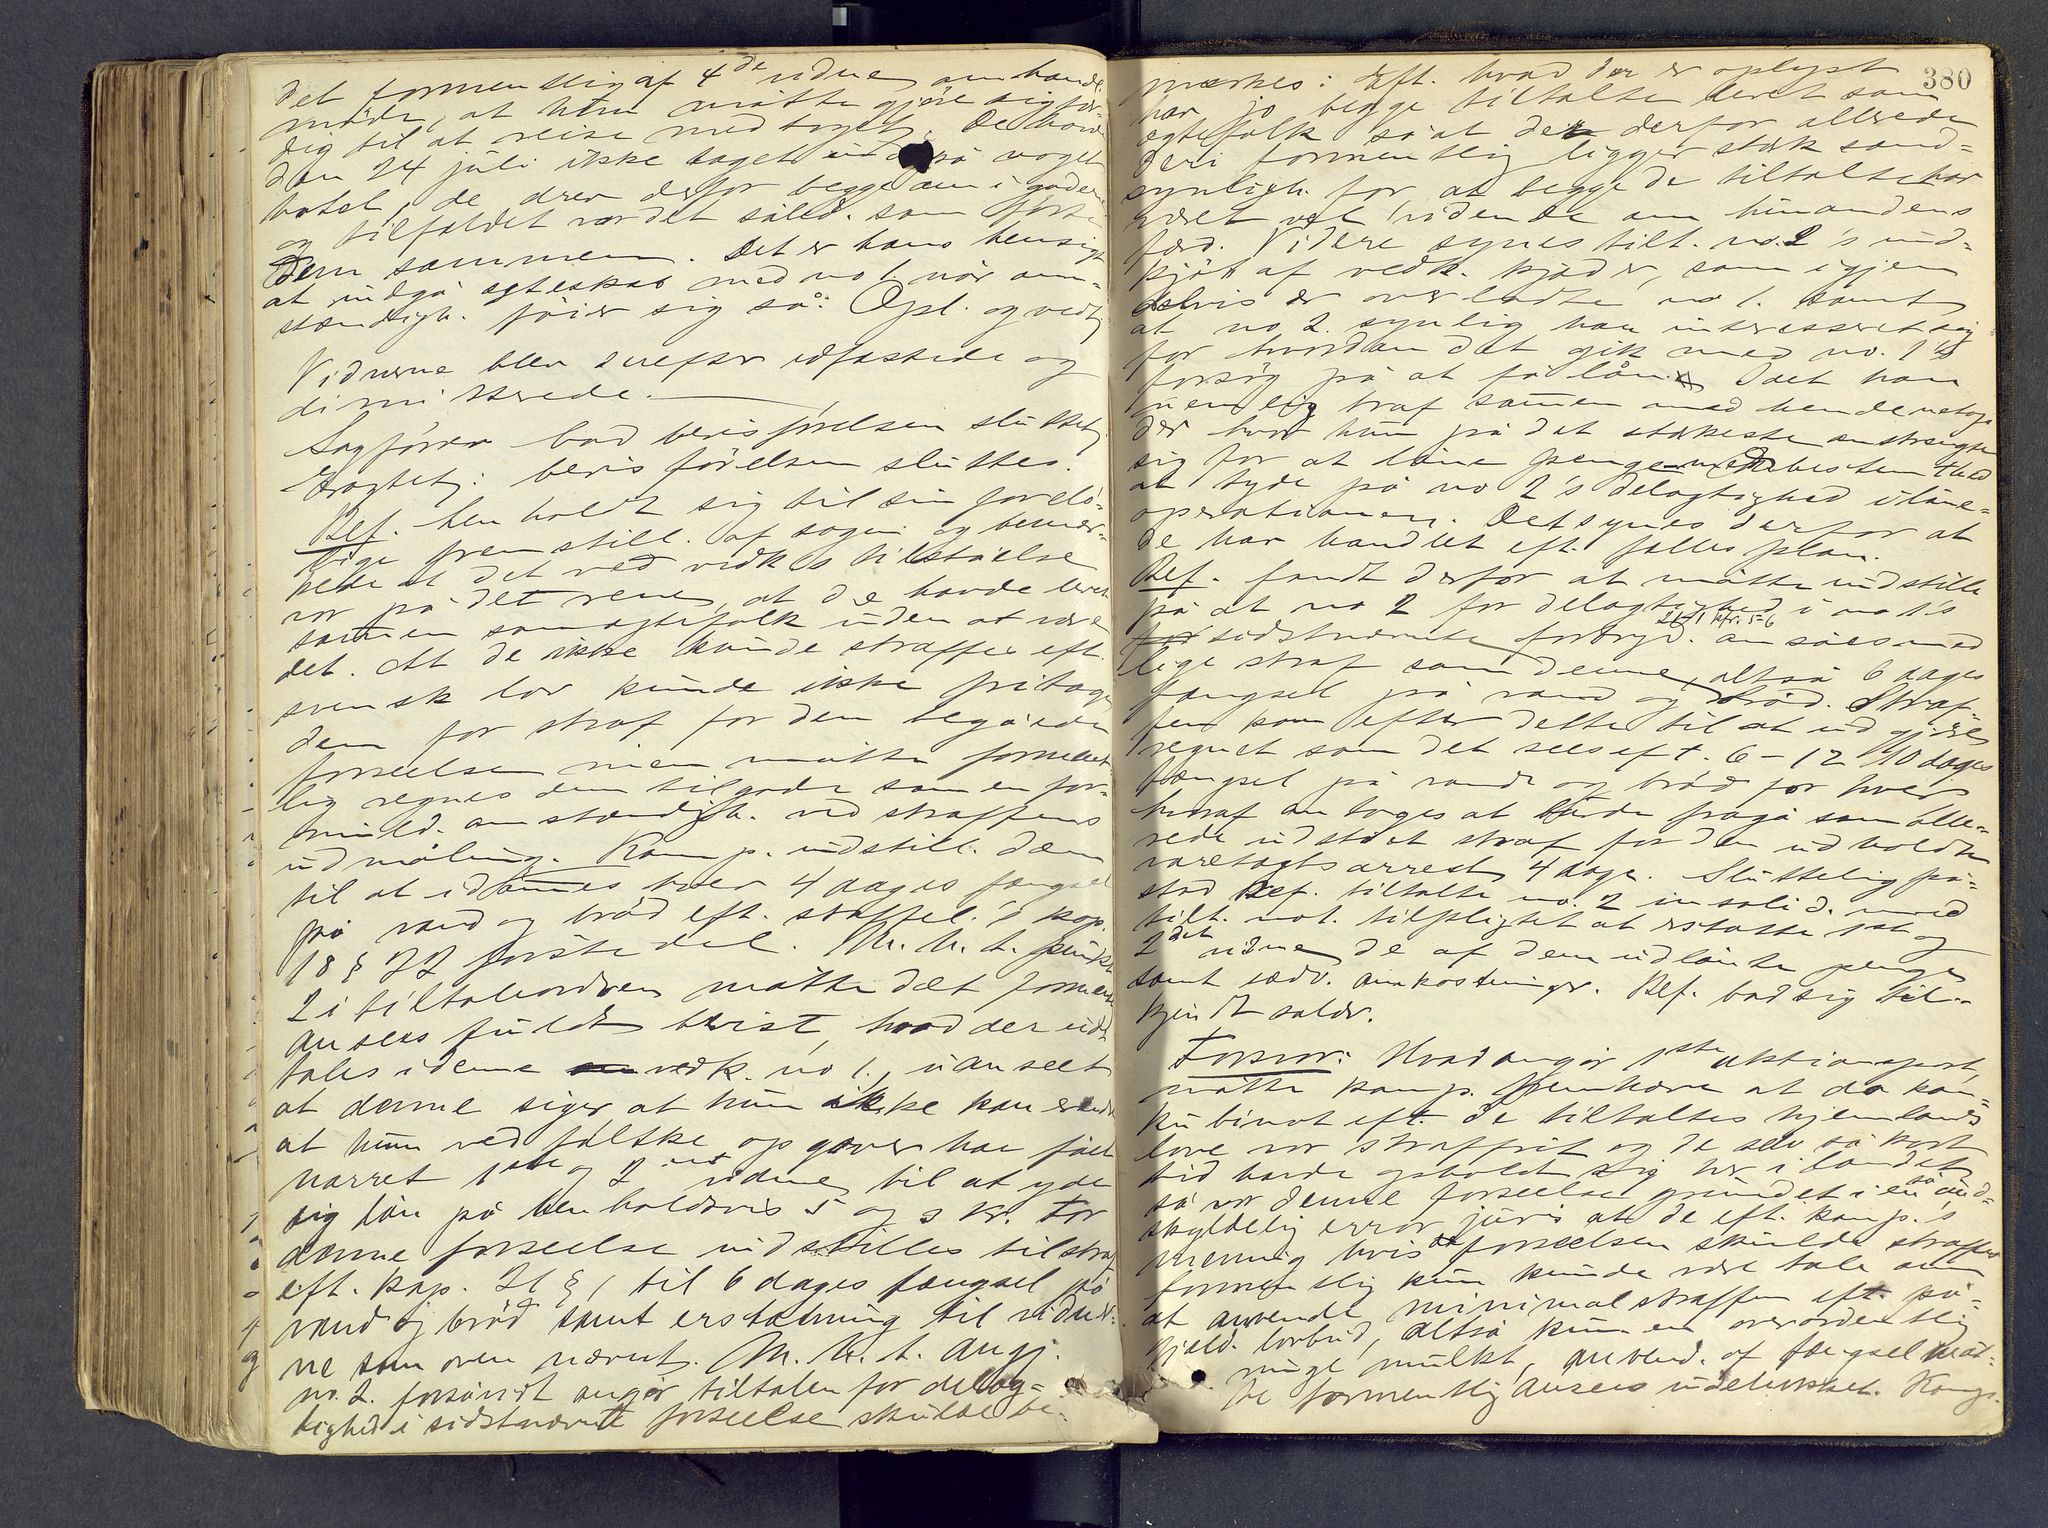 det formentlig af 4de vidne om hande
måde, at hun måtte gjøre sig fær-
dig til at reise med toget. De havde
den 24 juli ikke taget ind på noget
hotel, de drev derfor begge om i gaderne
og tilfældet var det såled. som førte
dem sammen. Det er hans hensigt
at indgå egteskab med no 1, når om-
stændigh. føier sig så. Opl. og vedt.
Vidnerne blev derefter edfæstede og
dimitterede.
Sagføreren bad bevisførelsen sluttet,
Eragtet: bevisførelsen sluttes.
Ref. henholdt sig til sin forelø-
bige fremstill. af sagen og bemær-
kede at det ved vedk.s tilståelse
var på det rene, at de havde levet
sammen som egtefolk uden at være
det. At de ikke kunde straffes eft.
svensk lov kunde ikke fritage
dem for straf for den begåede
forseelse men måtte forment-
lig regnes dem tilgode som en for-
mild. omstændigh. ved straffens
udmåling. Komp. indstill. dem
til at idømmes hver 4 dages fængsel
på vand og brød eft. straffel.'s kap.
18 § 22 første del. M. h. t. punkt
2 i tiltaleordren måtte det forment.
ansees fuldt bevist, hvad der ud-
tales i denne vedk. no 1, uanseet
at denne siger, at hun ikke kan erindre
at hun ved falske opgaver har fået
narret 1ste og 2det vidne til at yde
sig lån på henholdsvis 5 og 3 kr. For
denne forseelse indstilles tilstraf
eft. kap. 21 § 1 til 6 dages fængsel på
vand og brød samt erstatning til vidner-
ne som oven nævnt. M. h. t. angj.
no. 2. forsåvidt angår tiltalen for delag-
tighed i sidstnævnte forseelse skulde be-
380
mærkes: Eft. hvad der er oplyst
har jo begge tiltalte levet som
egtefolk så at der derfor allerede
deri formentlig ligger stærk sand-
synligh. for at begge de tiltalte har
været vel vidende om hinandens
færd. Videre synes tilt. no. 2's ind-
kjøb af vedk. kjoler, som igjen
delvis er overladte no 1. samt
at no 2. synlig har interesseret sig
for hvordan det gik med no. 1's
forsøg på at få lån, idet han
nemlig traf sammen med hende netop
der hvor hun på det stærkeste anstrengte
sig for at låne penge med bestemthed
at tyde på no 2's delagtighed i låne-
operationen. Det synes derfor at
de har handlet eft. fælles plan.
Ref. fandt derfor at måtte indstille
på at no 2 for delagtighed i no 1's
sidstnævnte forbryd. 21-1 kfr. 5-6 ansees med
lige straf som denne, altså 6 dages
fængsel på vand og brød. Straf-
fen kom efter dette til at udgjøre
regnet som det sees eft. 6-12 10 dages
fængsel på vand og brød for hver
hvoraf antages at burde fragå som alle-
rede udstået straf for den udholdte
varetægtsarrest 4 dage. Sluttelig på-
stod Ref. tiltalte no. 2 in solid. med
tilt. no 1. tilpligtet at erstatte 1ste og
2det vidne de af dem udlånte penge
samt sædv. omkostninger. Ref. bad sig til-
kjendt salær.
Forsvar: Hvad angår 1ste aktionspost,
måtte komp. fremhæve at da kon-
kubinat eft. de tiltaltes hjemlands
love var straffrit og de selv så kort
tid havde opholdt sig her i landet
så var denne forseelse grundet i en så und-
skyldelig error juris at de eft. komp.'s
mening hvis forseelsen skulde straffes
formentlig kun kunde være tale om
at anvende minimalstraffen eft. på-
gjæld. lovbud, altså kun en overordentlig
ringe mulkt, anvend. af fængsel måt-
te formentlig ansees udelukket. Komp.